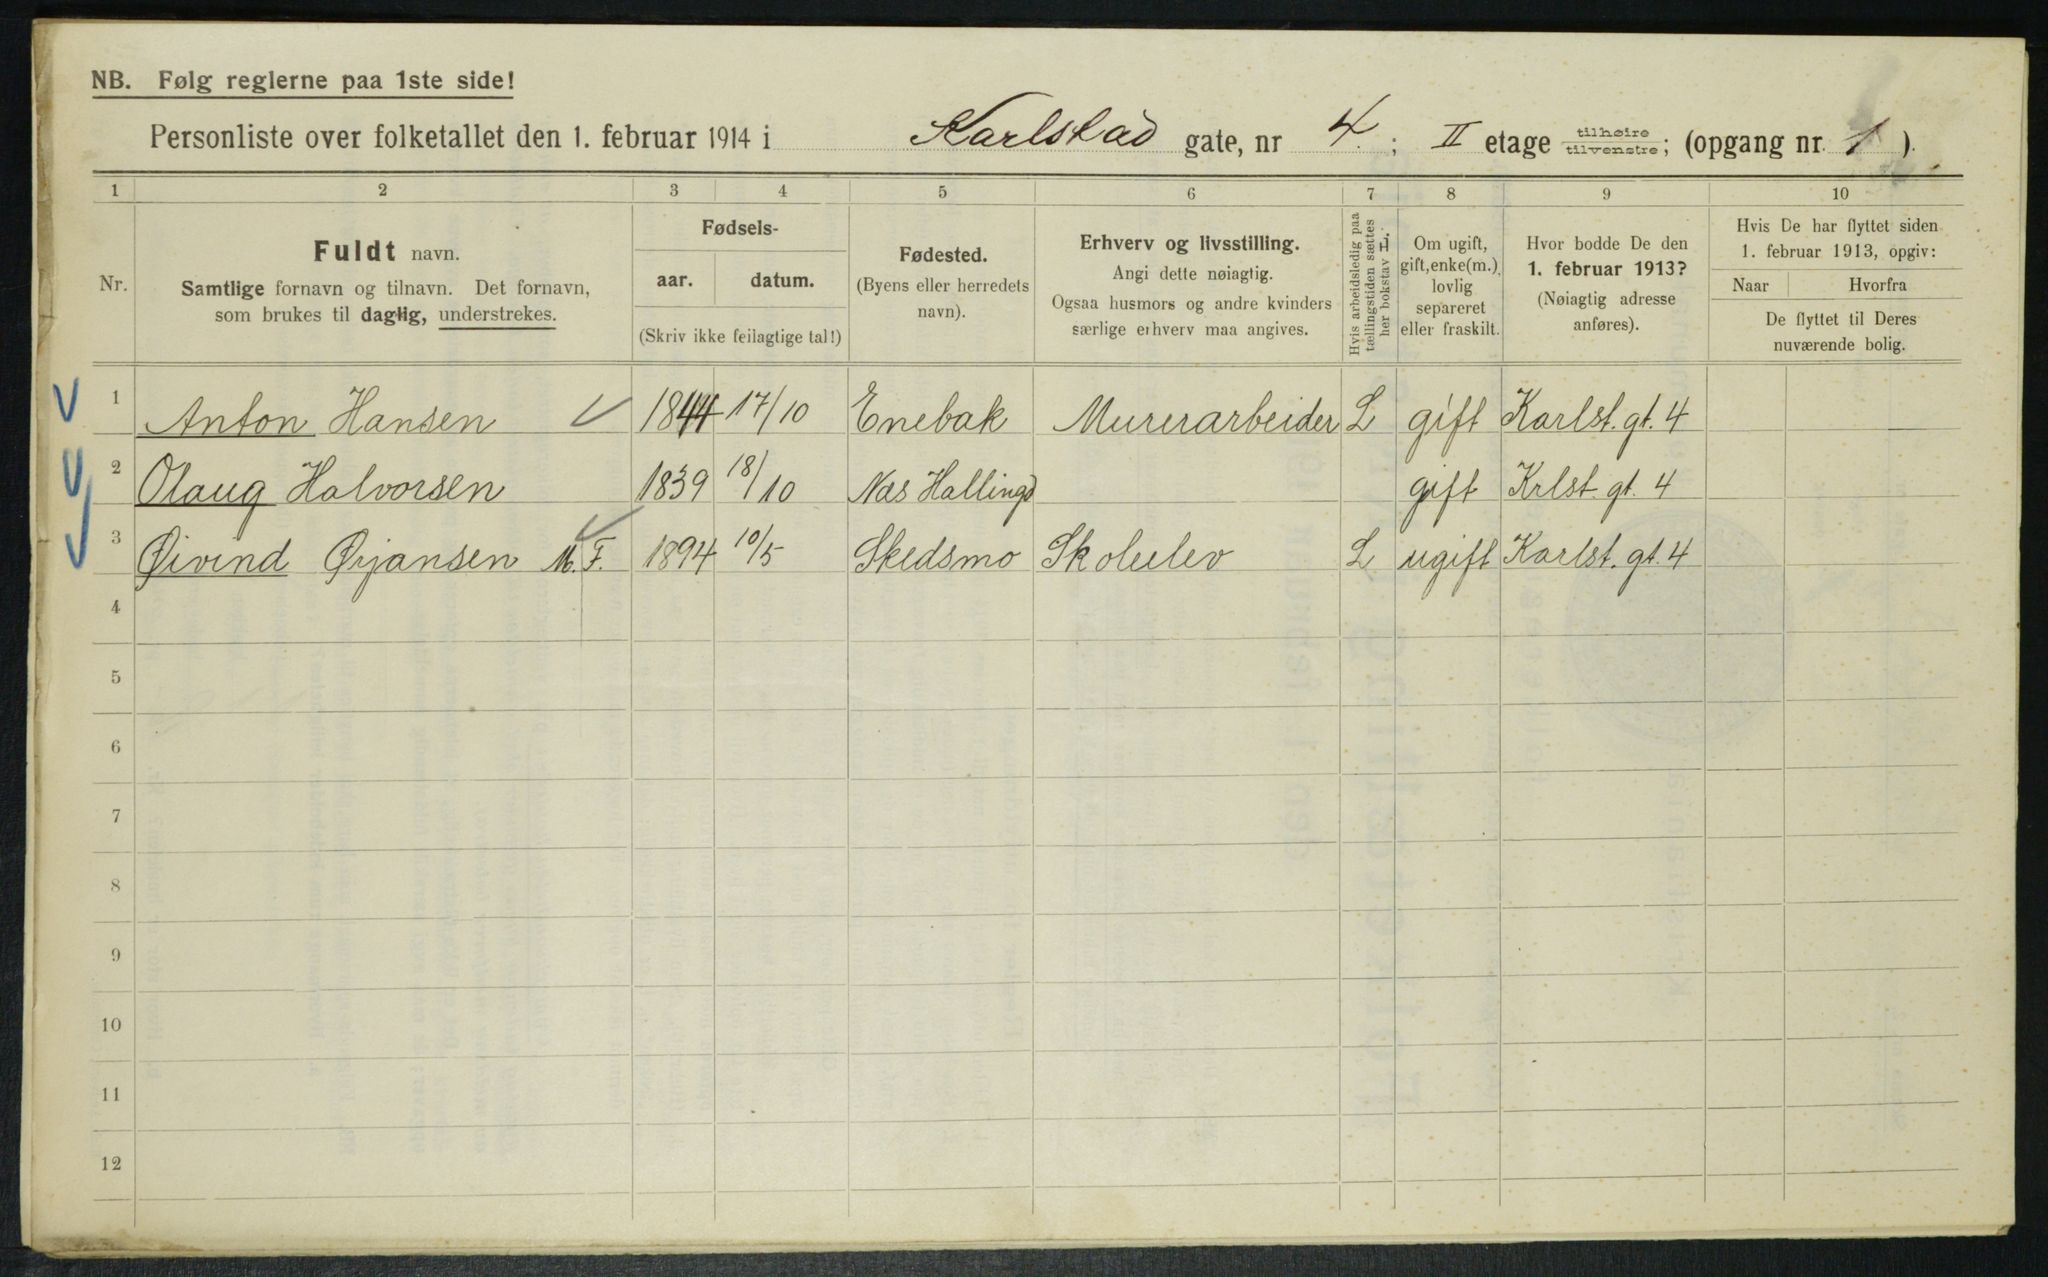 NB. Følg reglerne paa 1ste side!
Personliste over folketallet den 1. februar 1914 i Karlstad gate, nr 4. ; II etage tilhøire tilvenstre; (opgang nr. 1 ).
1 2 3 4 5 6 7 8 9 10
Nr.
Fuldt navn.
Samtlige fornavn og tilnavn. Det fornavn,
som brukes til daglig, understrekes.
Fødsels-
aar. datum.
(Skriv ikke feilagtige tal!)
Fødested.
(Byens eller herredets
navn).
Erhverv og livsstilling.
Angi dette nøiagtig.
Ogsaa husmors og andre kvinders
særlige erhverv maa angives.
Hvis arbeidsledig paa
tællingstiden sættes
her bokstav L.
Om ugift,
gift, enke(m.),
lovlig
separeret
eller fraskilt.
Hvor bodde De den
1. februar 1913?
(Nøiagtig adresse
anføres).
Hvis De har flyttet siden
1. februar 1913, opgiv:
Naar Hvorfra
De flyttet til Deres
nuværende bolig.
1 Anton Hansen 1844 17/10 Enebak Murerarbeider L gift Karlst. gt. 4
2 Olaug Halvorsen 1839 18/10 Næs Hallingd gift Krlst. gt. 4
3 Øivind Ørjansen M. F. 1894 10/5 Skedsmo Skoleelev L ugift Karlst. gt. 4
4
5
6
7
8
9
10
11
12